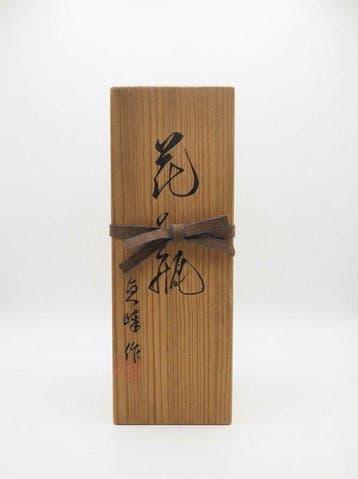 花瓶
峰作